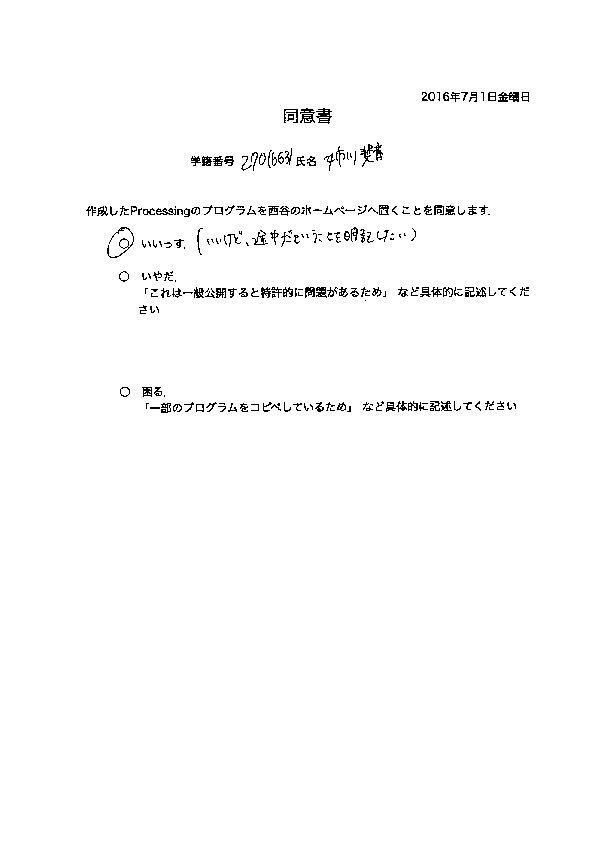 2016年7月1日金曜日
同意書
学籍番号 氏名 市川
作成したProcessingのプログラムを西谷のホームページへ置くことを同意します.
○ いいっす. (いいけど、途中だということを明記したい)
○ いやだ.
「これは一般公開すると特許的に問題があるため」 など具体的に記述してくだ
さい
○ 困る.
「一部のプログラムをコピペしているため」 など具体的に記述してください